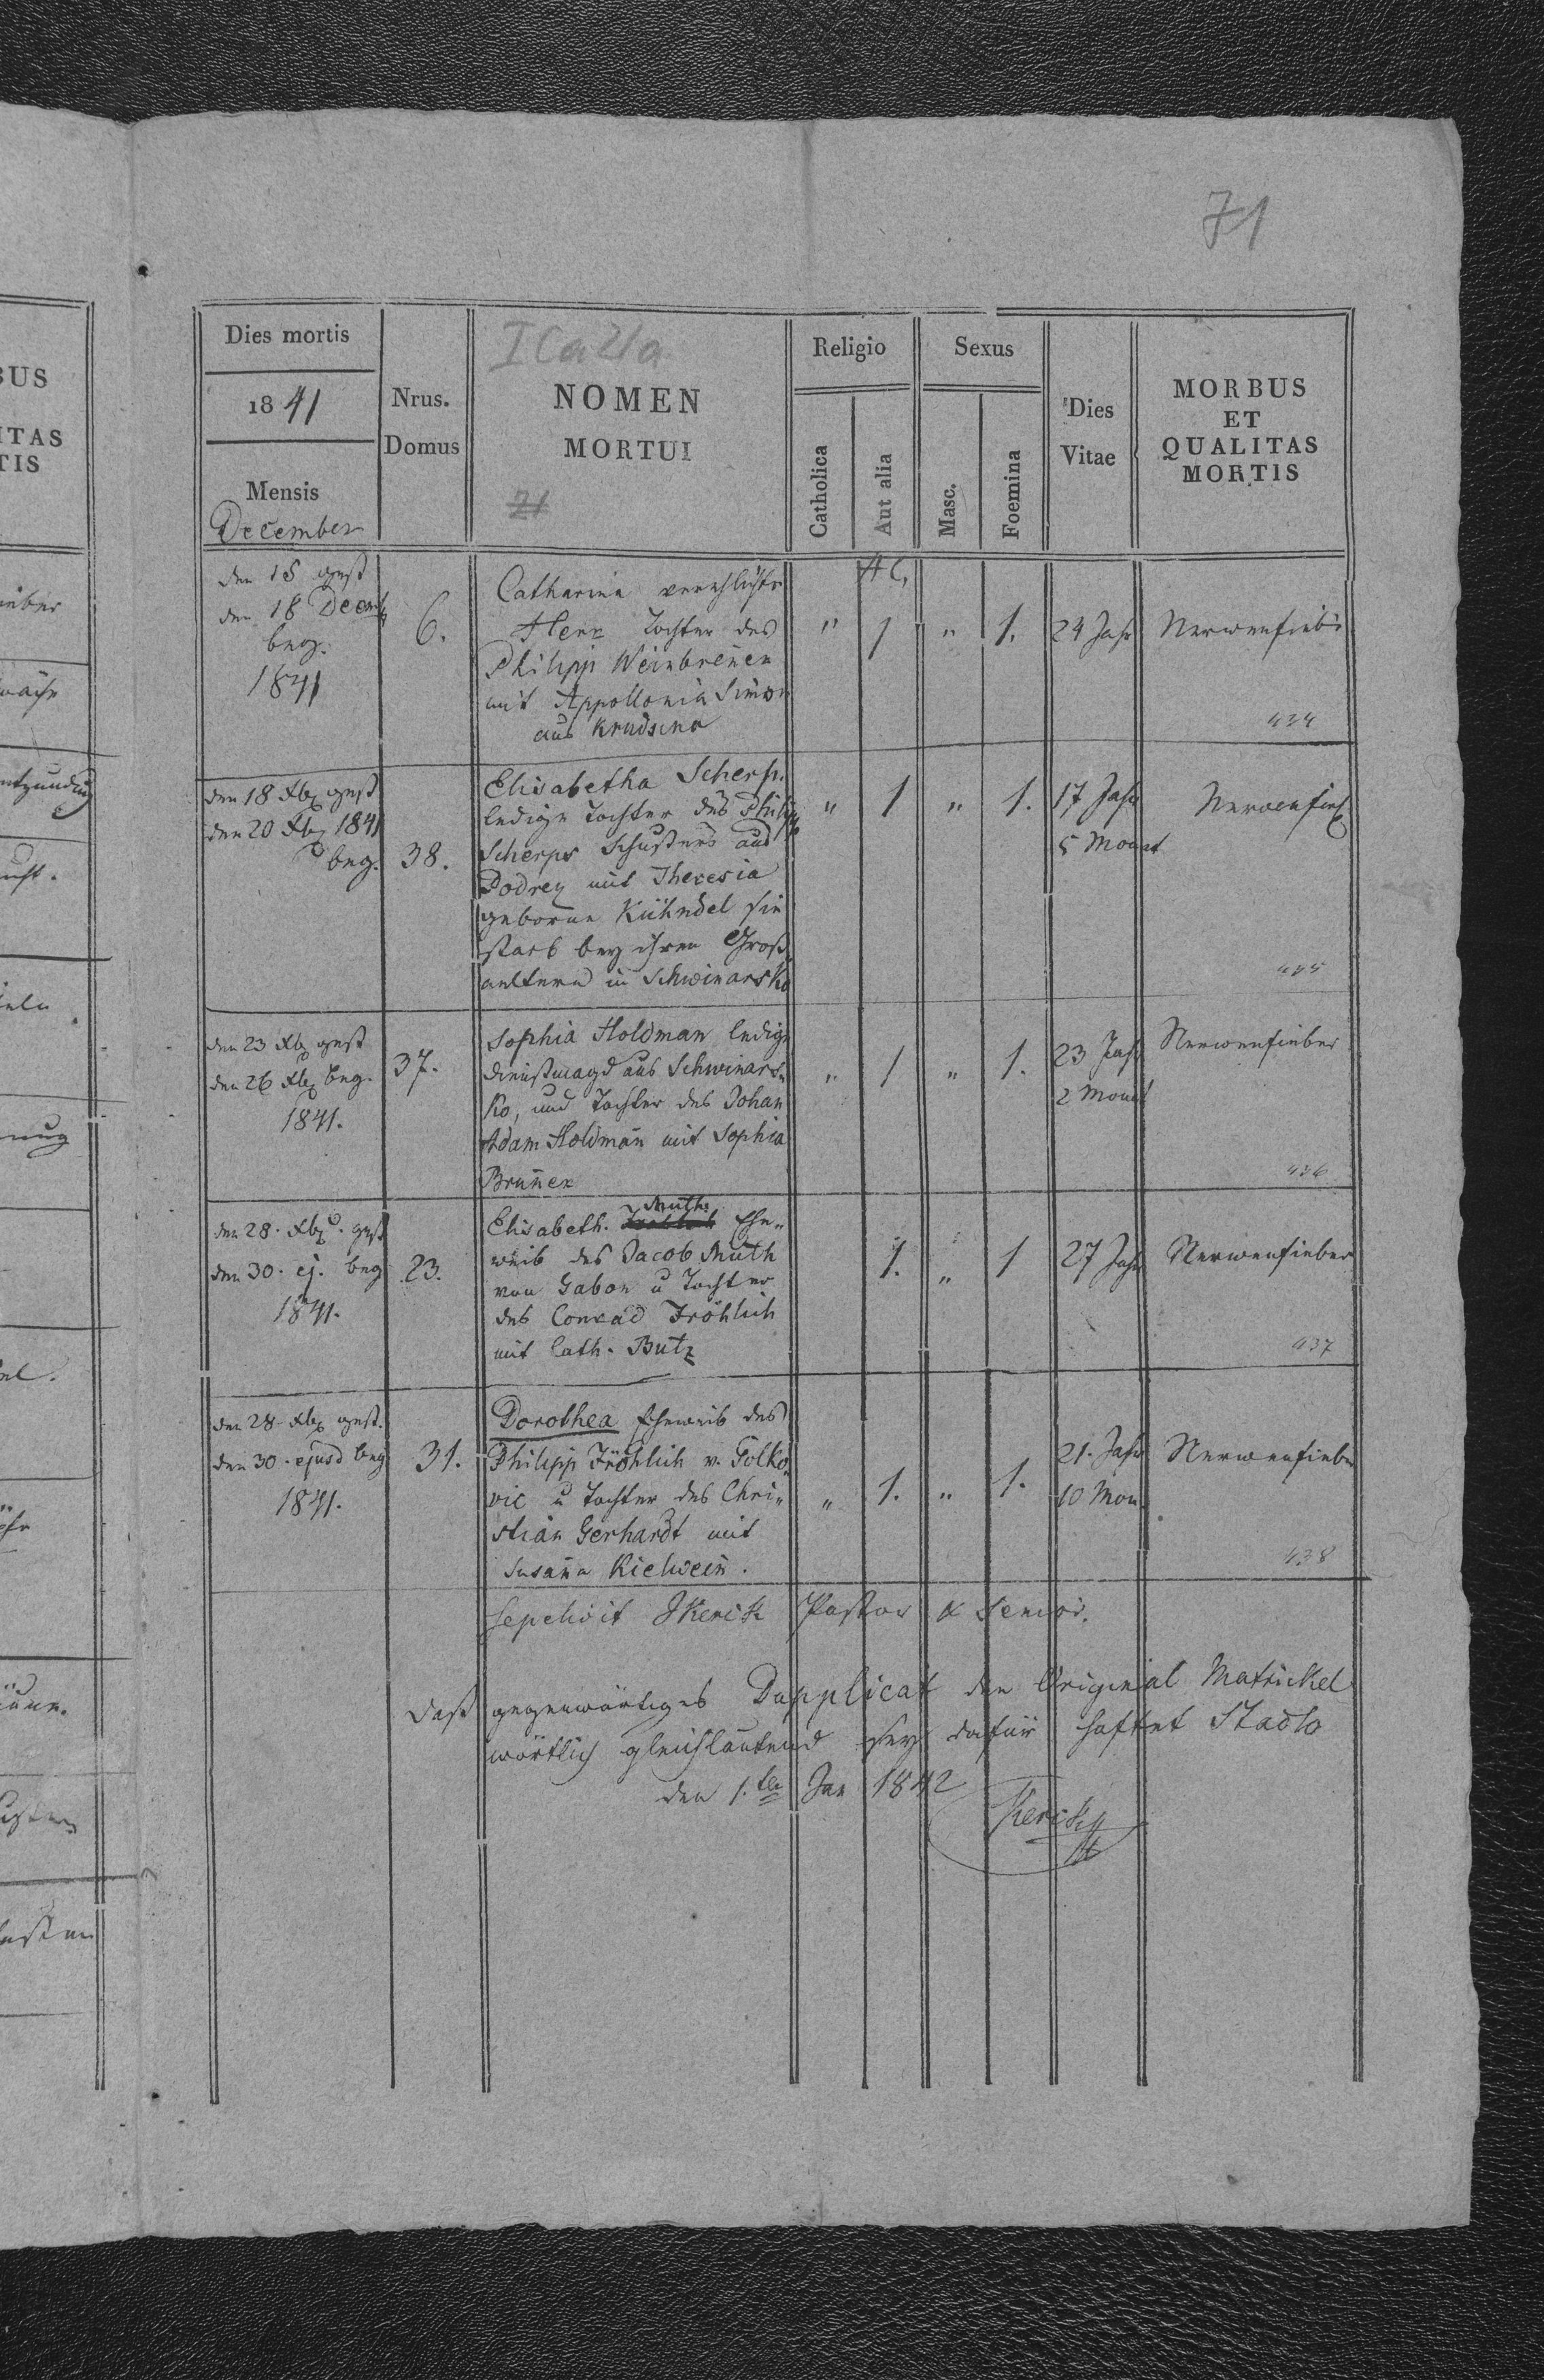 71
Dies mortis
1841
Mensis
December
Nrus.
Domus
I Ca 21a
NOMEN
MORTUI
21
Religio
Catholica
Aut alia
Sexus
Masc.
Foemina
Dies
Vitae
MORBUS
ET
QUALITAS
MORTIS
den 15 gest
den 18 Decemb
beg.
1841
6.
Catharina verehlichte
Herz Tochter des
Philipp Weinbrenen
mit Appollonia Simon
aus Krudsina
AC,
"
1
"
1.
24 Jahr
Nerwenfieber
434
den 18 Xbr gest
den 20 Xbr 1841
beg.
38.
Elisabetha Scherp.
ledige Tochter des Philipp
Scherps Schusters aus
Podrey mit Theresia
geborne Kühndel sie
starb bey ihren Groß
aeltern in Schwinarsko
"
1
"
1.
17 Jahr
5 Monat
Nervenfieb
435
den 23 Xbr gest
den 26 Xbr beg.
1841.
37.
Sophia Holdman ledige
dienstmagd aus Schwinars„
Ko, und Tochter des Johan
Adam Holdman mit Sophia
Bruñer
"
1
"
1.
23 Jahr
2 Monat
Nerwenfieber
436
den 28. Xbr. gest
den 30. ej. beg
1841.
23.
Elisabeth. Muth. Ehe„
weib des Jacob Muth
von Gabon u Tochter
des Conrad Fröhlich
mit Cath. Butz
1.
"
1
27 Jahr
Nerwenfieber
437
den 28. Xbr gest.
den 30. ejusd beg
1841.
31.
Dorothea Eheweib des
Philipp Fröhlich v. Golko„
vic u Tochter des Chri„
stian Gerhardt mit
Susaña Kielwein.
"
1.
"
1.
21. Jahr
10 Mon
Nerwenfieber
438
Sepelivit JKerick Pastor & Senior.
Daß gegenwärtiges Dupplicat dem Original Matrickel
wörtlich gleichlautend sey dafür haftet Stadlo
den 1.ten Jan 1842
Kerick